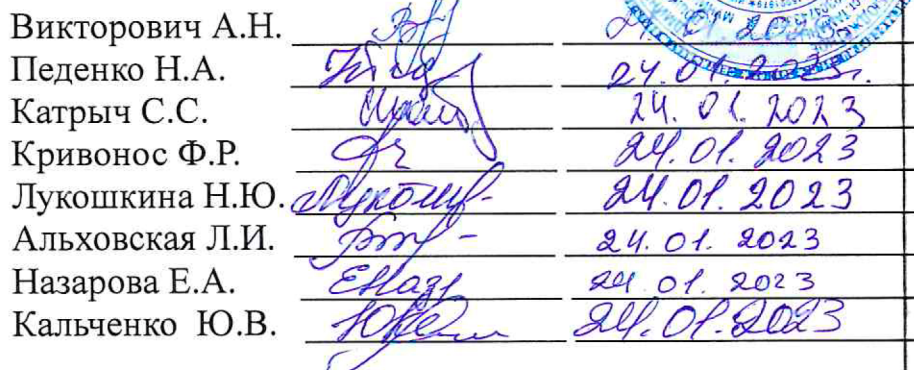 Викторович А.Н. 24.01.2023
Педенко Н.А. 24.01.2023г.
Катрыч С.С. 24.01.2023
Кривонос Ф.Р. 24.01.2023
Лукошкина Н.Ю. 24.01.2023
Альховская Л.И. 24.01.2023
Назарова Е.А. 24.01.2023
Кальченко Ю.В. 24.01.2023